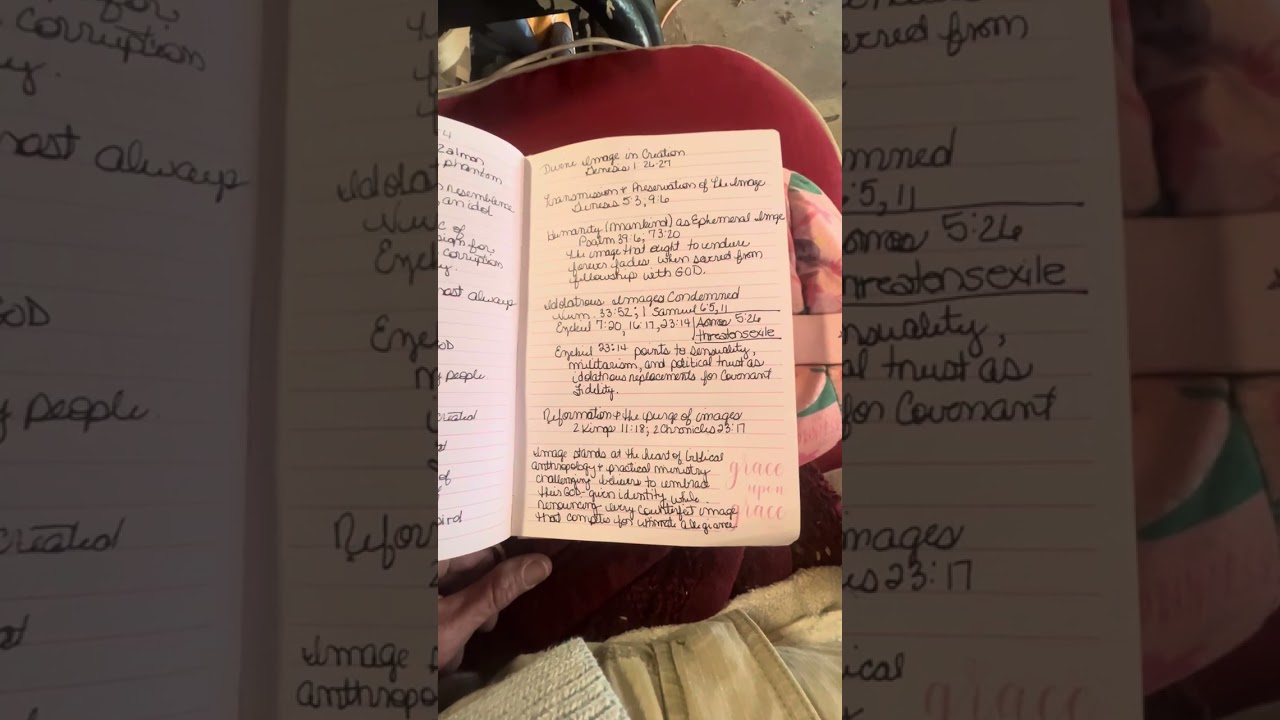 Zalmon
phantom
resemblance
an idol
sign for
corruption
most always
GOD
people
created
Divine Image in Creation
Genesis 1:26-27
Transmission + Preservation of the Image
Genesis 5:3, 9:6
Humanity (mankind) as Ephemeral Image
Psalm 39:6, 73:20
the image that ought to endure
forever fades when sacred from
fellowship with GOD.
Idolatrous Images Condemned
Num. 33:52; 1 Samuel 6:5, 11
Ezekiel 7:20, 16:17, 23:14 | Amos 5:26
threatens exile
Ezekiel 23:14 points to sensuality,
militarism, and political trust as
idolatrous replacements for Covenant
Fidelity.
Reformation + the purge of images
2 Kings 11:18; 2 Chronicles 23:17
Image stands at the heart of biblical
anthropology + practical ministry
challenging believers to embrace
their GOD-given identity while
renouncing every counterfeit image
that competes for ultimate allegiance
grace
upon
grace